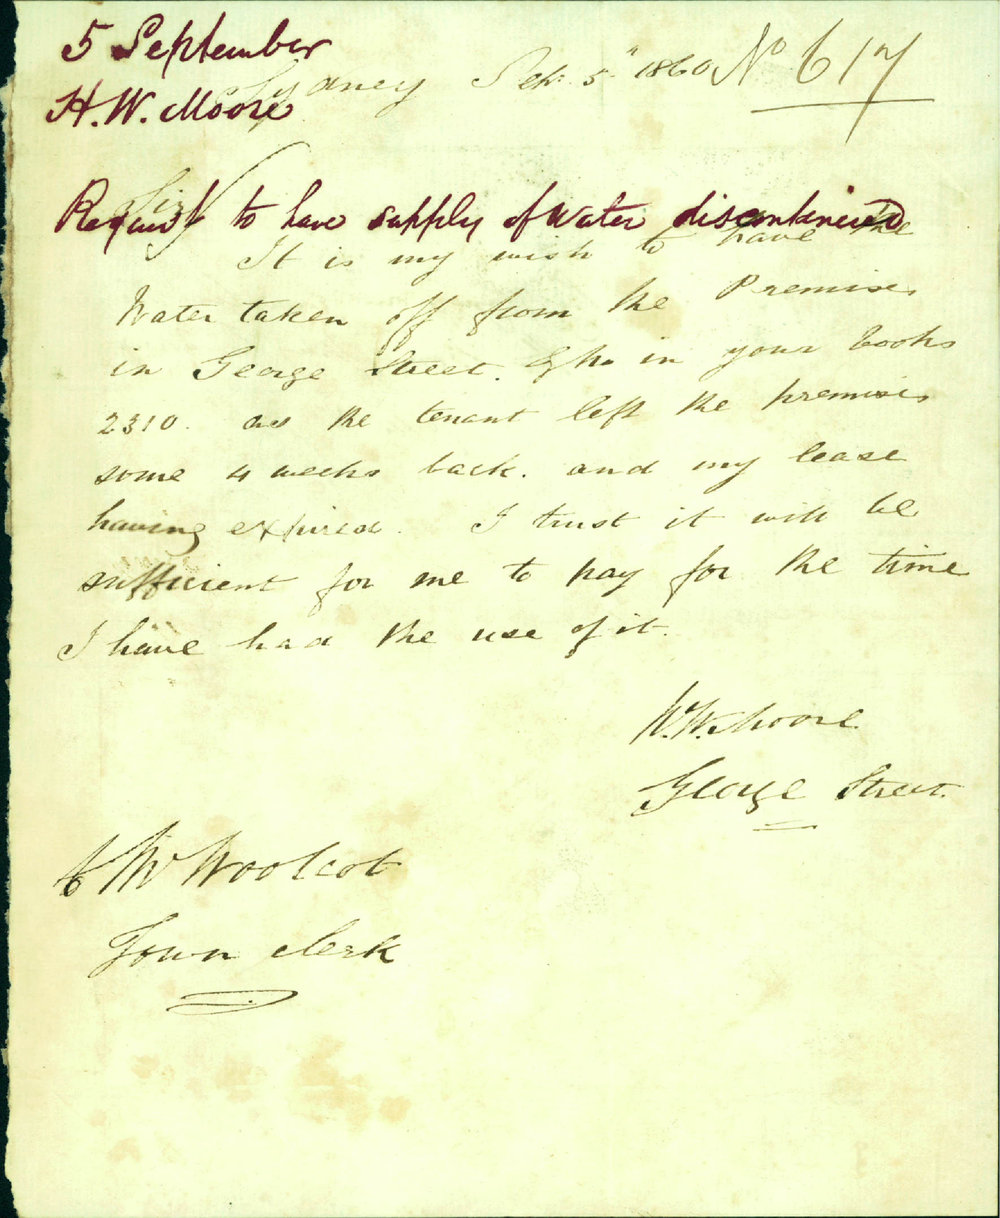 5 September
Sydney Sep. 5th 1860 No 617
H. W. Moore
Sir
Request to have supply of Water discontinued
It is my wish to have the
Water taken off from the Premises
in George Street. & No in your books
2310. as the tenant left the premises
some 4 weeks back. and my lease
having expired. I trust it will be
sufficient for me to pay for the time
I have had the use of it.
W. Moore
George Street.
Woolcot
Town Clerk